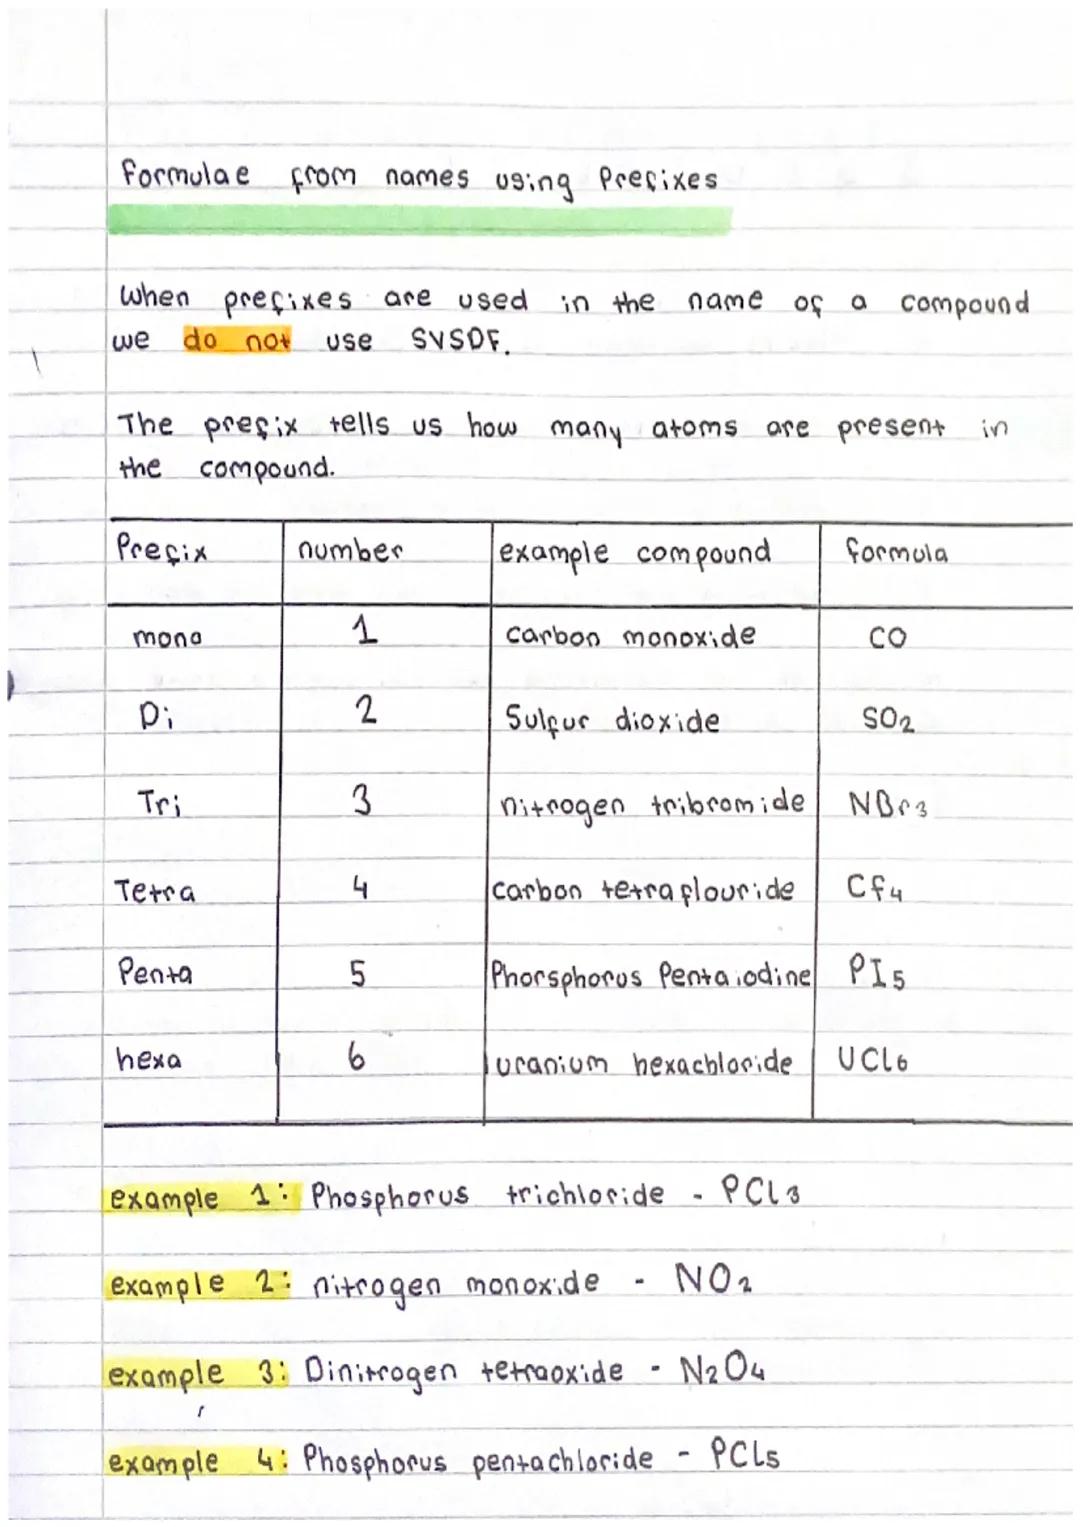 Formulae from names using Prefixes
When prefixes are used in the name of a compound
we do not use SVSDF.
The prefix tells us how many atoms are present in
the compound.
Prefix number example compound formula
mono 1 carbon monoxide CO
Di 2 Sulfur dioxide SO2
Tri 3 nitrogen tribromide NBr3
Tetra 4 carbon tetraflouride Cf4
Penta 5 Phorsphorus Pentaiodine PI5
hexa 6 uranium hexachloride UCl6
example 1: Phosphorus trichloride - PCl3
example 2: nitrogen monoxide - NO2
example 3: Dinitrogen tetraoxide - N2O4
example 4: Phosphorus pentachloride - PCl5